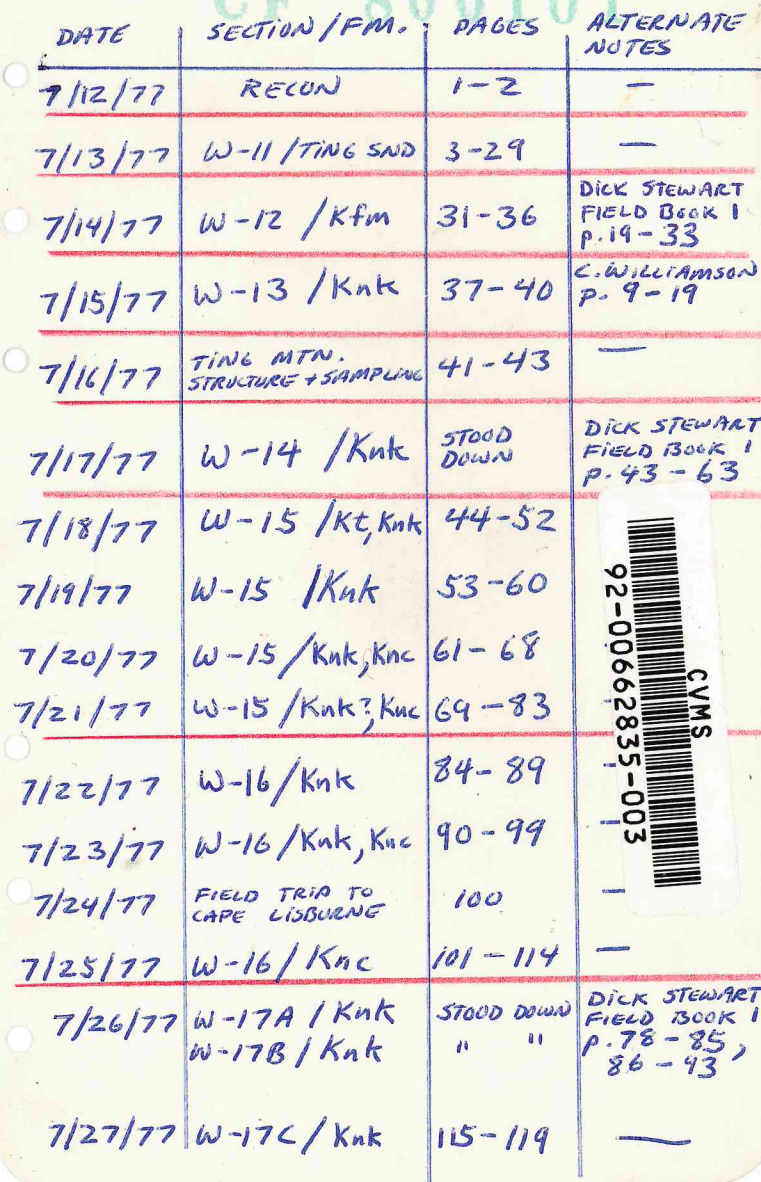 CF 800101
DATE SECTION/FM. PAGES ALTERNATE NOTES
7/12/77 RECON 1-2 —
7/13/77 W-11/TING SND 3-29 —
7/14/77 W-12 /Kfm 31-36 DICK STEWART FIELD BOOK 1 p.19-33
7/15/77 W-13 /Knk 37-40 C.WILLIAMSON p. 9-19
7/16/77 TING MTN. STRUCTURE + SAMPLING 41-43 —
7/17/77 W-14 /Knk STOOD DOWN DICK STEWART FIELD BOOK 1 p.43-63
7/18/77 W-15 /Kt,Knk 44-52
7/19/77 W-15 /Knk 53-60
7/20/77 W-15/Knk,Knc 61-68
7/21/77 W-15 /Knk?,Knc 69-83
7/22/77 W-16/Knk 84-89 —
7/23/77 W-16/Knk,Knc 90-99 —
7/24/77 FIELD TRIP TO CAPE LISBURNE 100 —
7/25/77 W-16/Knc 101-114 —
7/26/77 W-17A / Knk STOOD DOWN DICK STEWART FIELD BOOK 1
W-17B / Knk " " p.78-85, 86-93
7/27/77 W-17C/Knk 115-119 —
CVMS
92-00662835-003